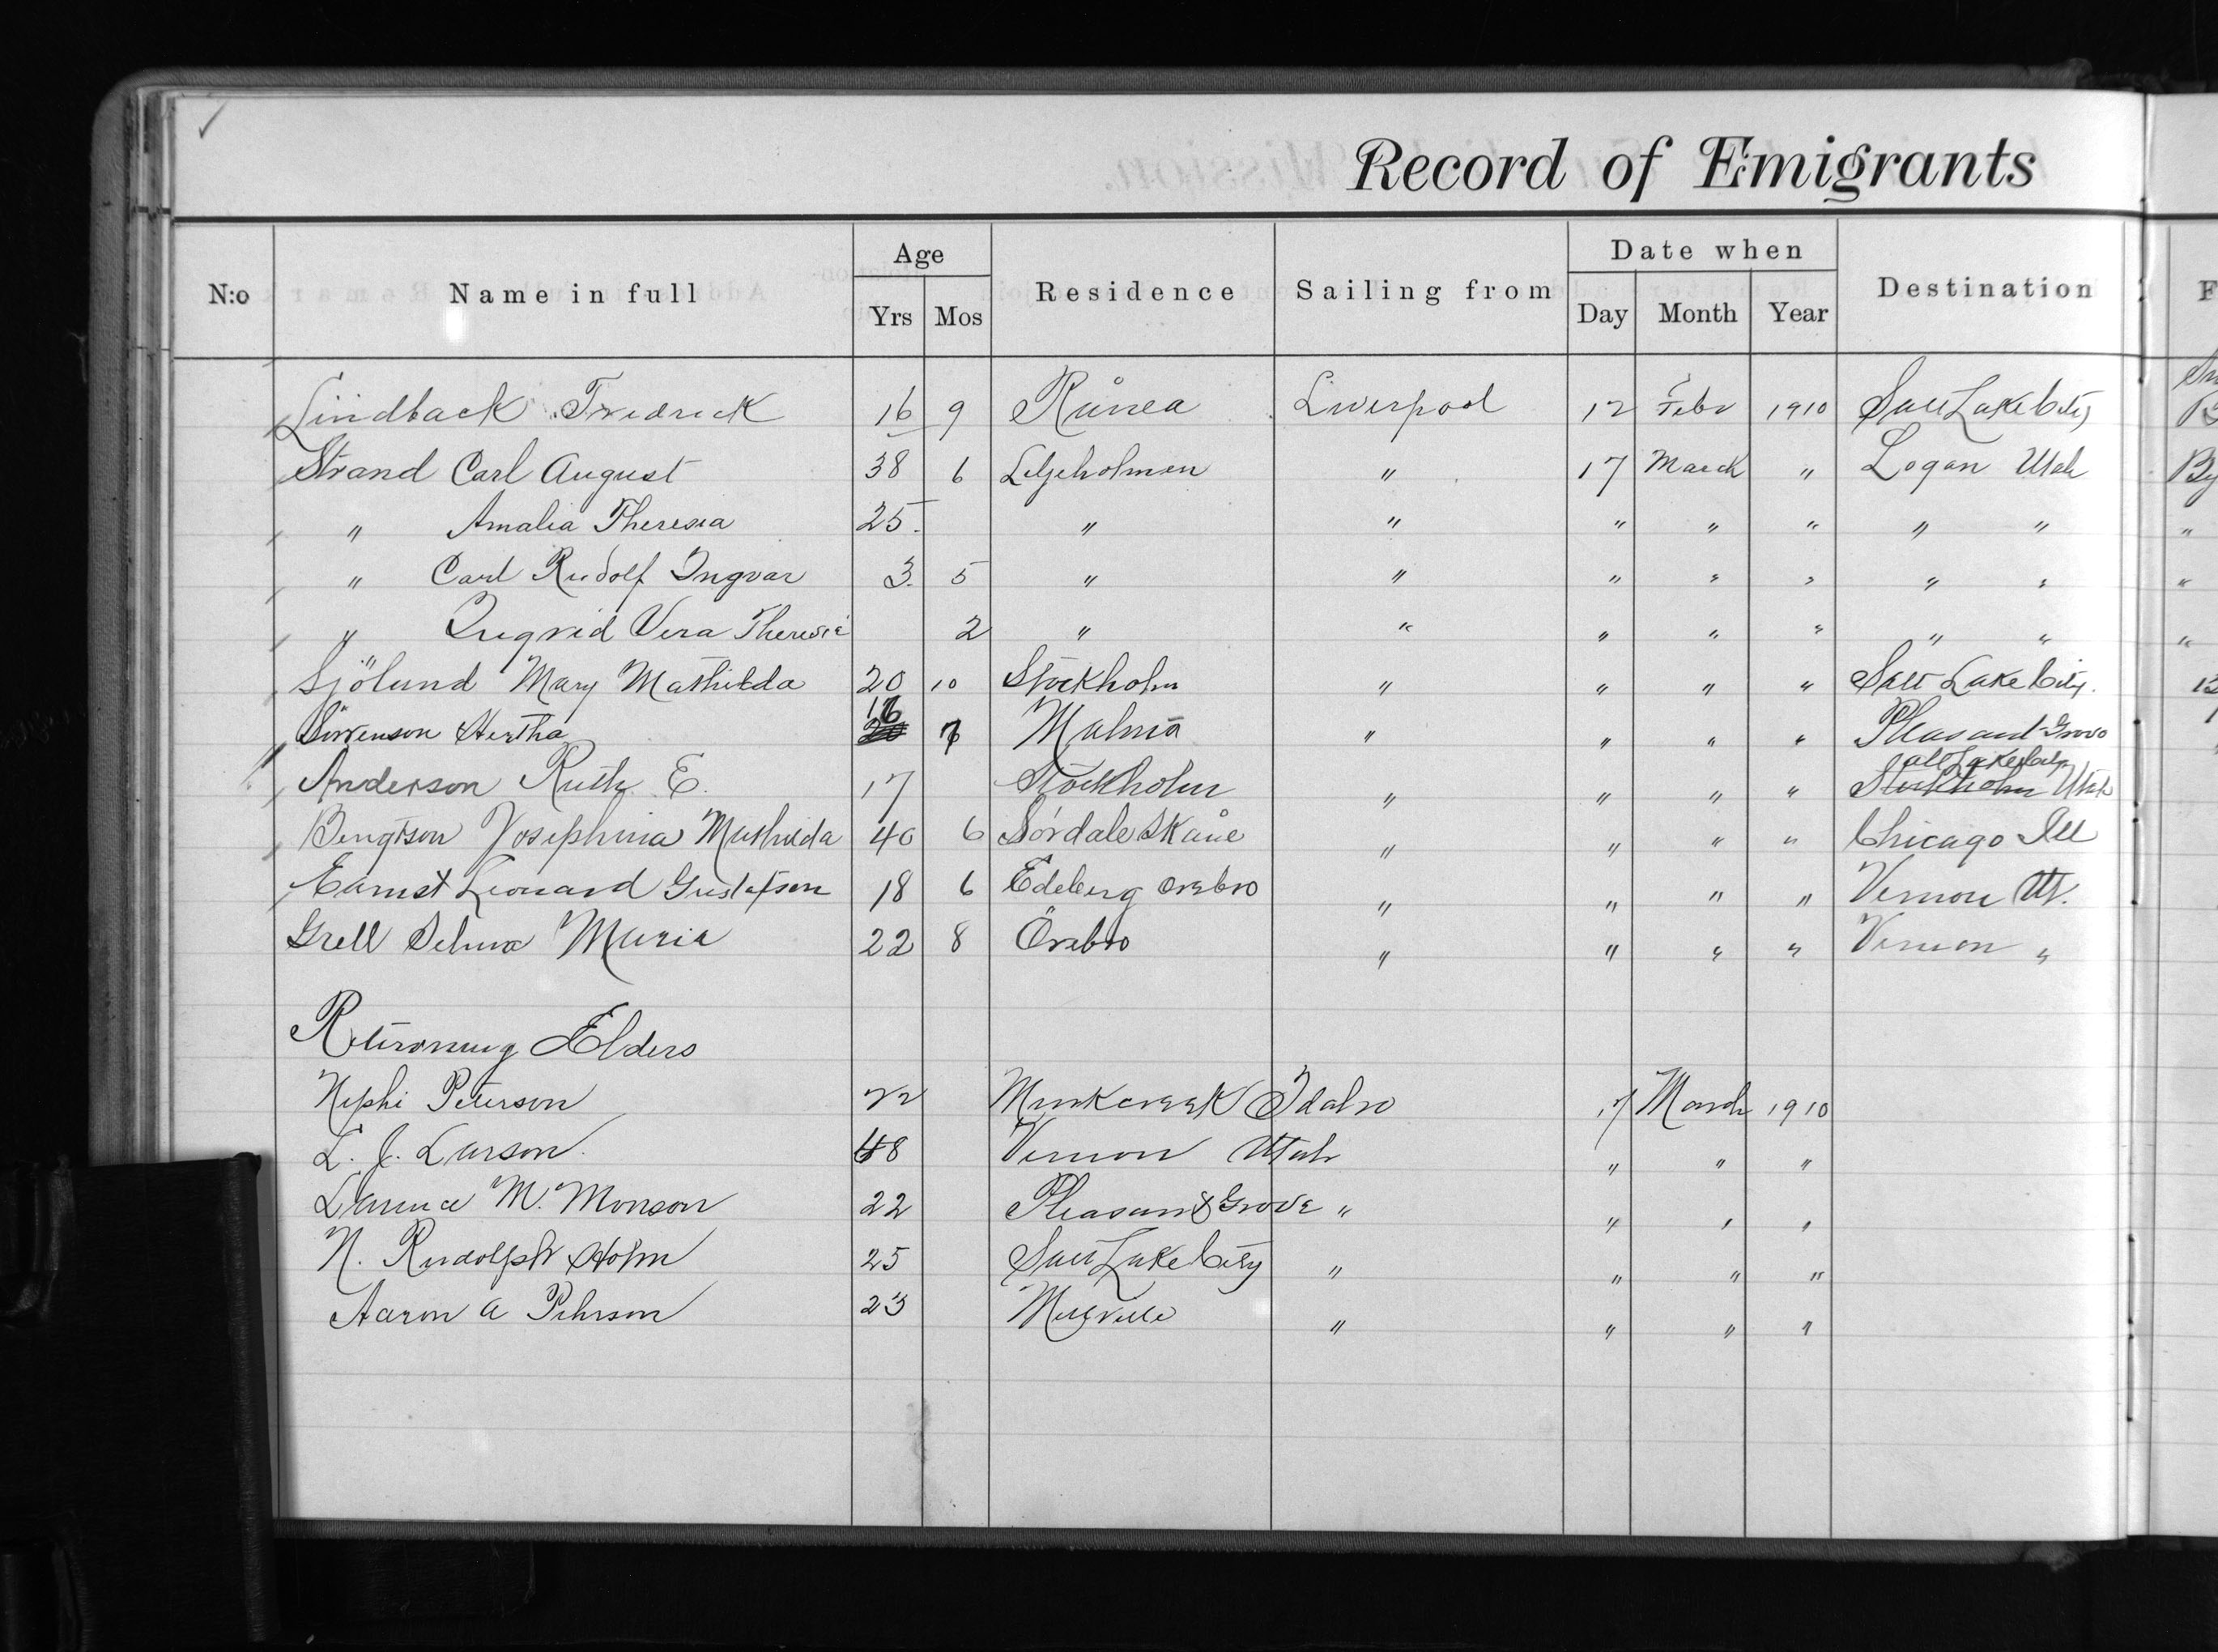 Record of Emigrants
N:o Name in full Age Yrs Mos Residence Sailing from Date when Day Month Year Destination
Lindback Fredrick 16 9 Rånea Liverpool 12 Febr 1910 Salt Lake City
Strand Carl August 38 6 Liljeholmen " 17 March " Logan Utah By
" Amalia Theresia 25 " " " " " " " "
" Carl Rudolf Ingvar 3 5 " " " " " " " "
" Ingrid Vera Theresia 2 " " " " " " " "
Sjölund Mary Mathilda 20 10 Stockholm " " " " Salt Lake City.
Sörenson Hertha 16 7 Malmö " " " " Pleasant Grove
Salt Lake City
Anderson Ruth E. 17 Stockholm " " " " Stockholm Utah
Bengtson Josephina Mathilda 40 6 Sördale Skåne " " " " Chicago Ill
Earnst Leonard Gustafson 18 6 Edeberg Orebro " " " " Vernon Ut.
Grell Selma Maria 22 8 Örebro " " " " Vernon "
Returning Elders
Nephi Peterson 22 Minkcreek Idaho 17 March 1910
L. J. Larson. 48 Vernon Utah " " "
Clarence M. Monson 22 Pleasant Grove " " " "
N. Rudolph Holm 25 Salt Lake City " " " "
Aaron A Pehrson 23 Millville " " " "